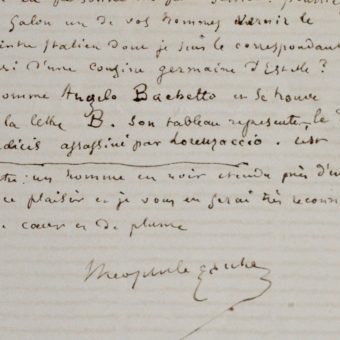 Salon un de vos hommes vernir le
intre italien dont je suis le correspondant
ri d'une cousine germaine d'Estelle?
omme Angelo Bachetto et se trouve
la lettre B. son tableau represente, le
dicis assassiné par Lorenzaccio.
tre: un homme en noir etendu près d'un
ce plaisir et je vous en serai très reconn
coeur et de plume
theophile gautier